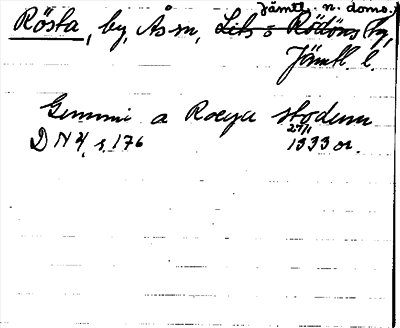 Jämtl. n. doms.
Rösta, by, Ås sn, Lits o Rödöns tg,
Jämtl. l.
Gemmi a Roeya stodum
DN 4, s. 176 27/1 1333 or.